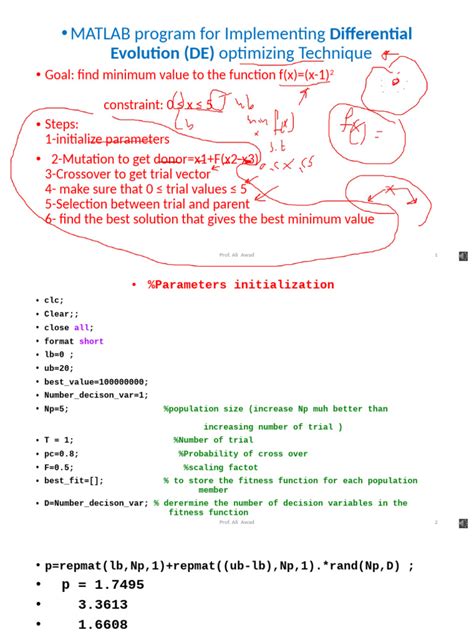 • MATLAB program for Implementing Differential
Evolution (DE) optimizing Technique
• Goal: find minimum value to the function f(x)=(x-1)²
constraint: 0 ≤ x ≤ 5
ub
lb
minimum
x
f(x)
s.t
0 ≤ x ≤ 5
f(x) =
x
• Steps:
1-initialize parameters
• 2-Mutation to get donor=x1+F(x2-x3)
3-Crossover to get trial vector
4- make sure that 0 ≤ trial values ≤ 5
5-Selection between trial and parent
6- find the best solution that gives the best minimum value
Prof. Ali Awad
1
• %Parameters initialization
• clc;
• Clear;;
• close all;
• format short
• lb=0 ;
• ub=20;
• best_value=100000000;
• Number_decison_var=1;
• Np=5; %population size (increase Np muh better than
increasing number of trial )
• T = 1; %Number of trial
• pc=0.8; %Probability of cross over
• F=0.5; %scaling factot
• best_fit=[]; % to store the fitness function for each population
member
• D=Number_decison_var; % derermine the number of decision variables in the
fitness function
Prof. Ali Awad
2
• p=repmat(lb,Np,1)+repmat((ub-lb),Np,1).*rand(Np,D) ;
• p = 1.7495
• 3.3613
• 1.6608